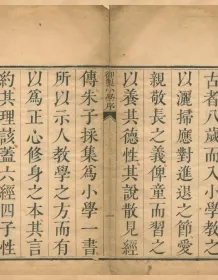 古者八歲而入小學教之
以灑掃應對進退之節愛
親敬長之義俾童而習之
以養其德性其說散見經
傳朱子採集為小學一書
所以示人教學之方而有
以為正心修身之本其言
約其理該蓋六經四子性